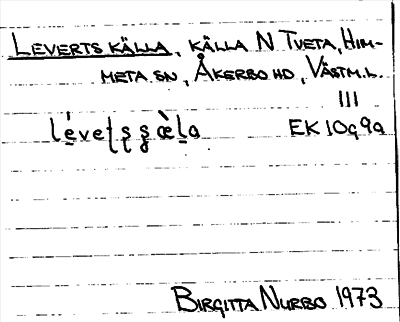 LEVERTS KÄLLA, KÄLLA N TVETA, HIM-
META SN, ÅKERBO HD, VÄSTM.L.
III
EK 10g9a
BIRGITTA NURBO 1973